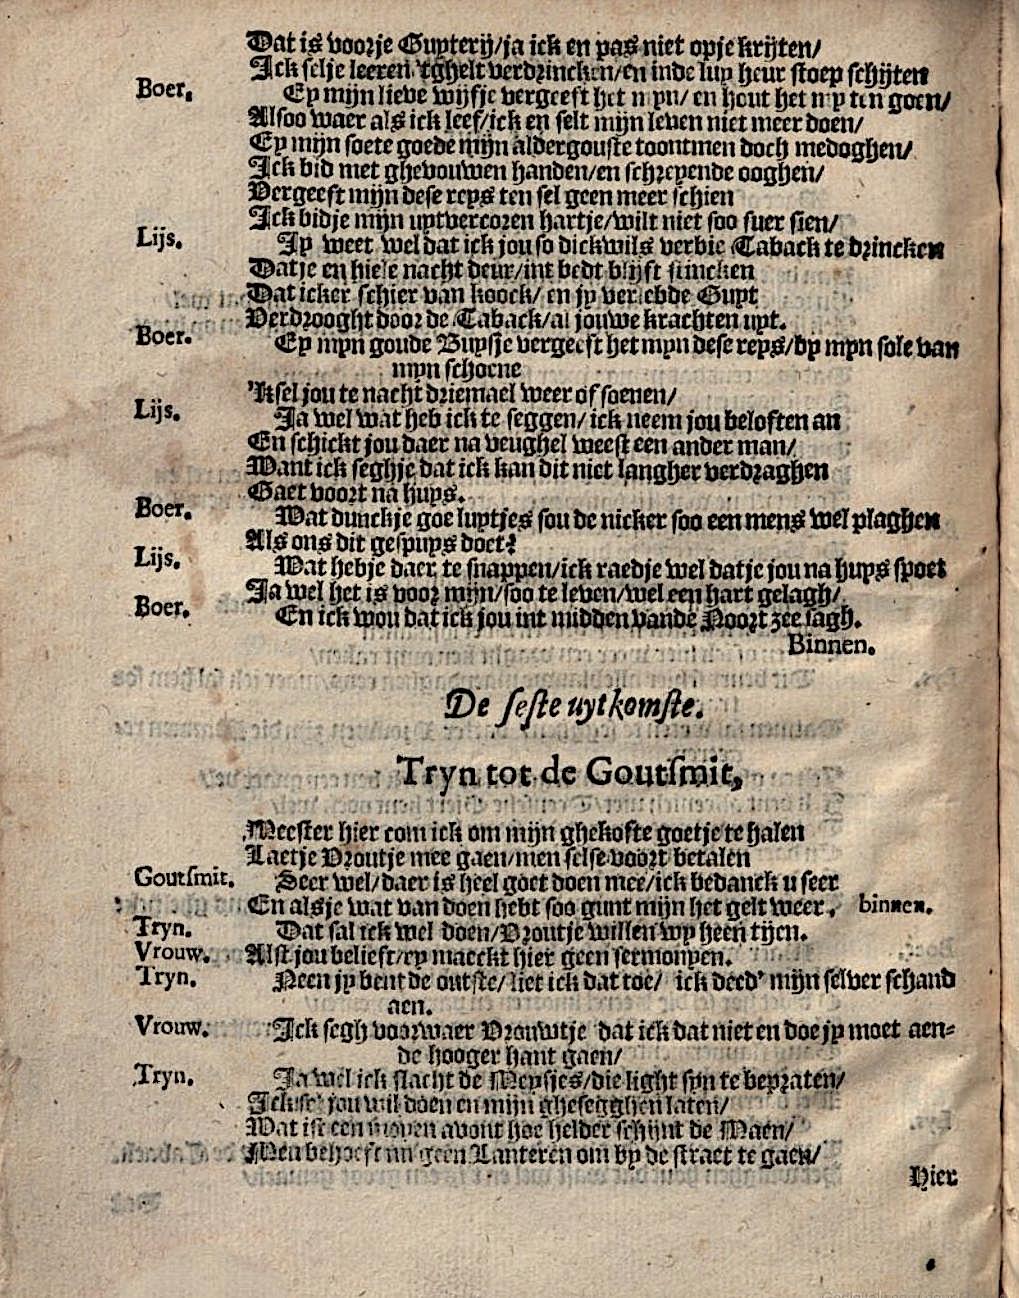 Dat is voorje Guyterij/ja ick en pas niet opje krijten/
Ick selje leeren 'tghelt verdrincken/en inde luy heur stoep schijten
Boer. Ey mijn lieve wijfje vergeeft het mijn/ en hout het my ten goen/
Alsoo waer als ick leef/ick en selt mijn leven niet meer doen/
Ey mijn soete goede mijn aldergouste toontmen doch medoghen/
Ick bid met ghevouwen handen/en schreyende ooghen/
Vergeeft mijn dese reys ten sel geen meer schien
Ick bidje mijn uytvercoren hartje/wilt niet soo suer sien/
Lijs. Jy weet wel dat ick jou so dickwils verbie Taback te drincken
Datje en hiele nacht deur/int bedt blijft stincken
Dat icker schier van koock/ en jy verlebde Guyt
Verdrooght door de Taback/al jouwe krachten uyt.
Boer. Ey myn goude Buysje vergeeft het myn dese reys/by myn sole van
myn schoene
'Ksel jou te nacht driemael weer of soenen/
Lijs. Ja wel wat heb ick te seggen/ ick neem jou beloften an
En schickt jou daer na veughel weest een ander man/
Want ick seghje dat ick kan dit niet langher verdraghen
Gaet voort na huys.
Boer. Wat dunckje goe luytjes sou de nicker soo een mens wel plaghen
Als ons dit gespuys doet?
Lijs. Wat hebje daer te snappen/ick raedje wel datje jou na huys spoet
Ja wel het is voor mijn/soo te leven/wel een hart gelagh/
Boer. En ick wou dat ick jou int midden vande Noort zee sagh.
Binnen.
De seste uytkomste.
Tryn tot de Goutsmit,
Meester hier com ick om mijn ghekofte goetje te halen
Laetje Vroutje mee gaen/men selse voort betalen
Goutsmit. Seer wel/daer is heel goet doen mee/ick bedanck u seer
En alsje wat van doen hebt soo gunt mijn het gelt weer. binnen.
Tryn. Dat sal ick wel doen/Vroutje willen wy heen tijen.
Vrouw. Alst jou belieft/ey maeckt hier geen sermonyen.
Tryn. Neen jy bent de outste/liet ick dat toe/ ick deed' mijn selver schand
aen.
Vrouw. Ick segh voorwaer Vrouwtje dat ick dat niet en doe jy moet aen-
de hooger hant gaen/
Tryn. Ja wel ick slacht de Meysjes/die light syn te bepraten/
jou wil doen en mijn ghesegghen laten/
Wat ist een moyen avont hoe helder schijnt de Maen/
Men behoeft nu geen Lanteren om by de straet te gaen/
Hier